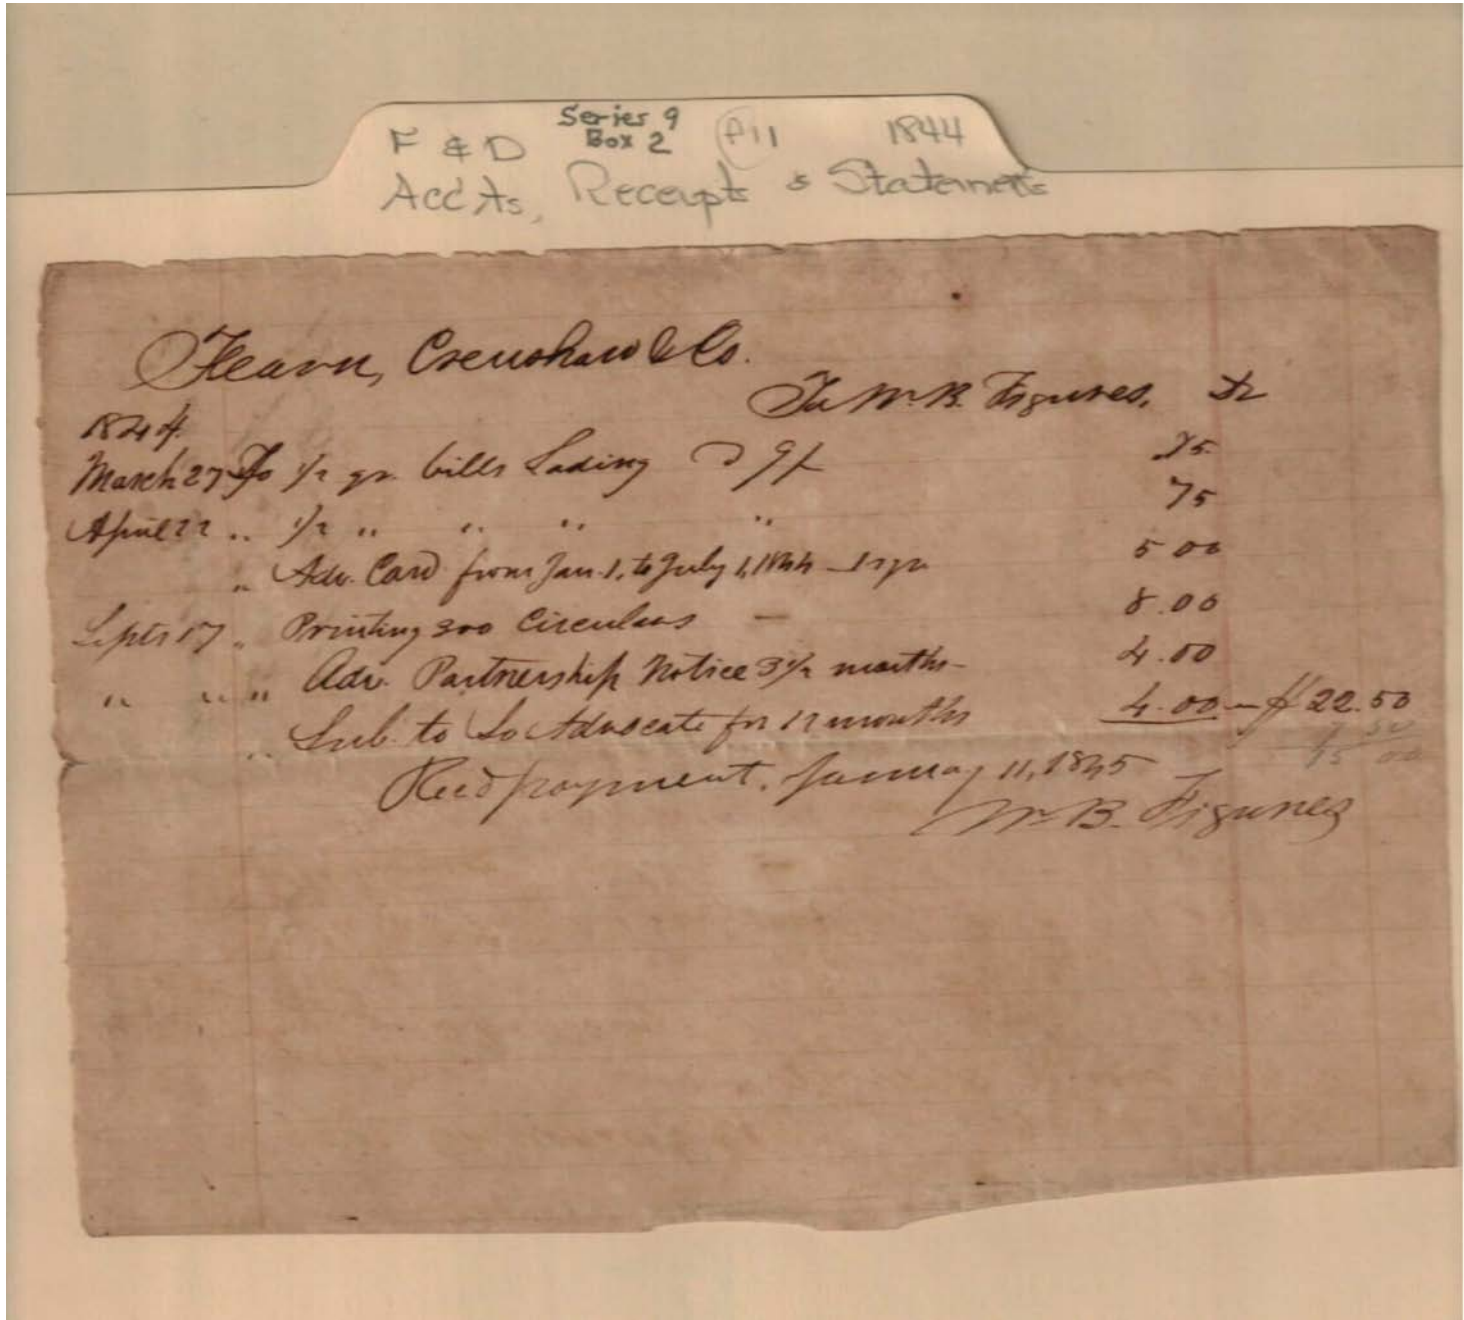 Series 9
F & D Box 2 F11 1844
Acc'ts, Receipts & Statements
Fearn, Crenshaw & Co.
To Wm. B. Figures, Dr
1844.
March 27 To 1/2 qr. bills Lading 75
April 22 " 1/2 " " " " 75
" Adv. Card from Jan. 1, to July 1, 1844 5 00
Septr 17 " Printing 300 Circulars — 8.00
" " " Adv. Partnership Notice 3 1/2 months — 4.00
" Sub. to So Advocate for 12 months 4.00 — $22.50
7 50
15 00
Recd payment, January 11, 1845
Wm. B. Figures